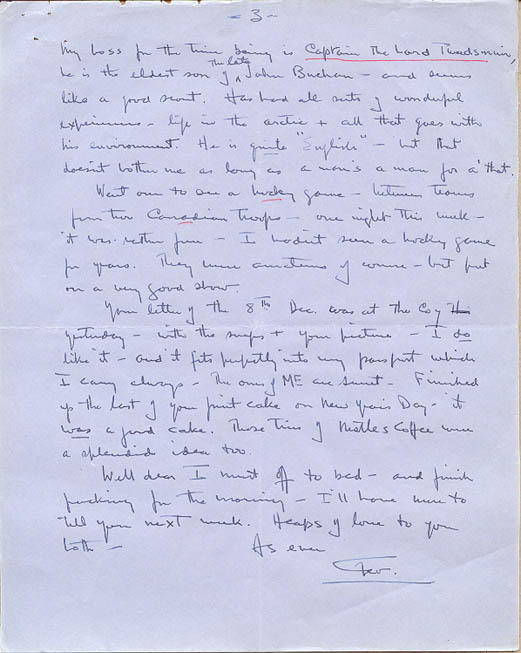 - 3 -
My boss for the time being is Captain The Lord Tweedsmuir,
he is the eldest son of the late John Buchan - and seems
like a good scout. Has had all sorts of wonderful
experiences - life in the arctic + all that goes with
his environment. He is quite "English" - but that
doesn't bother me as long as a man's a man for a' that.
Went over to see a hockey game - between teams
from two Canadian Troops - one night this week -
it was rather fun - I hadn't seen a hockey game
for years. They were amateurs of course - but put
on a very good show.
Your letter of the 8th Dec. was at the Coy
yesterday - with the snaps + your picture - I do
like it - and it fits perfectly into my passport which
I carry always - The ones of ME are sweet - Finished
up the last of your fruit cake on New Years Day - it
was a good cake. Those tins of Nestles Coffee were
a splendid idea too.
Well dear I must off to bed - and finish
packing for the morning - I'll have more to
tell you next week. Heaps of love to you
both -
As ever